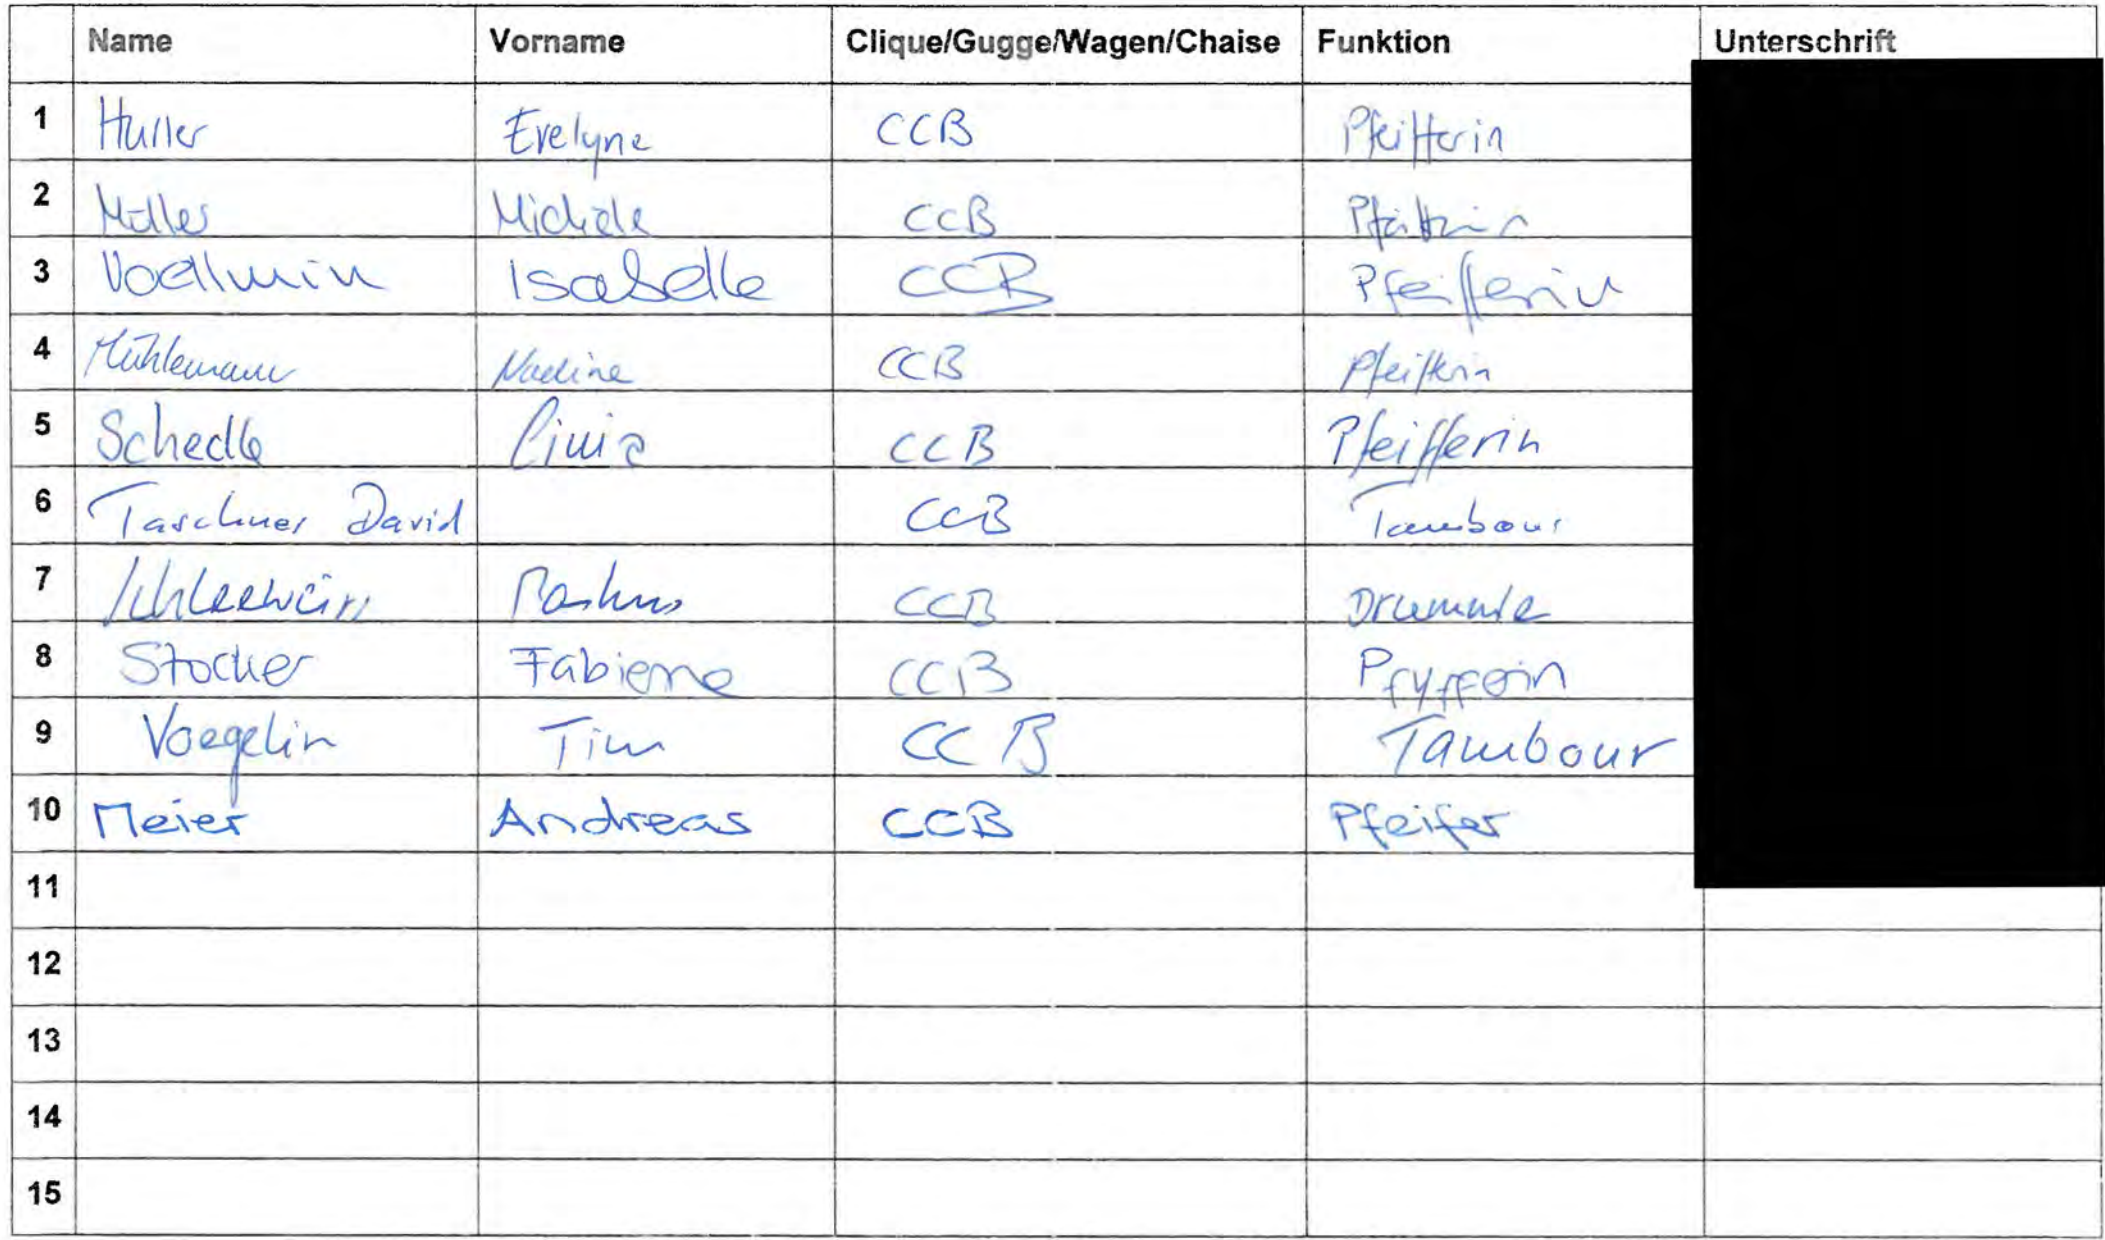 Name Vorname Clique/Gugge/Wagen/Chaise Funktion Unterschrift
1 Evelyne CCB Pfeifferin
2 Müller Michèle CCB Pfeifferin
3 Voellmin Isabelle CCB Pfeifferin
4 Mühlemann Nadine CCB Pfeifferin
5 Schedle Livia CCB Pfeifferin
6 Taschner David CCB Tambour
7 CCB Drummle
8 Stocker Fabienne CCB Pfyfferin
9 Voegelin Tim CCB Tambour
10 Meier Andreas CCB Pfeifer
11
12
13
14
15